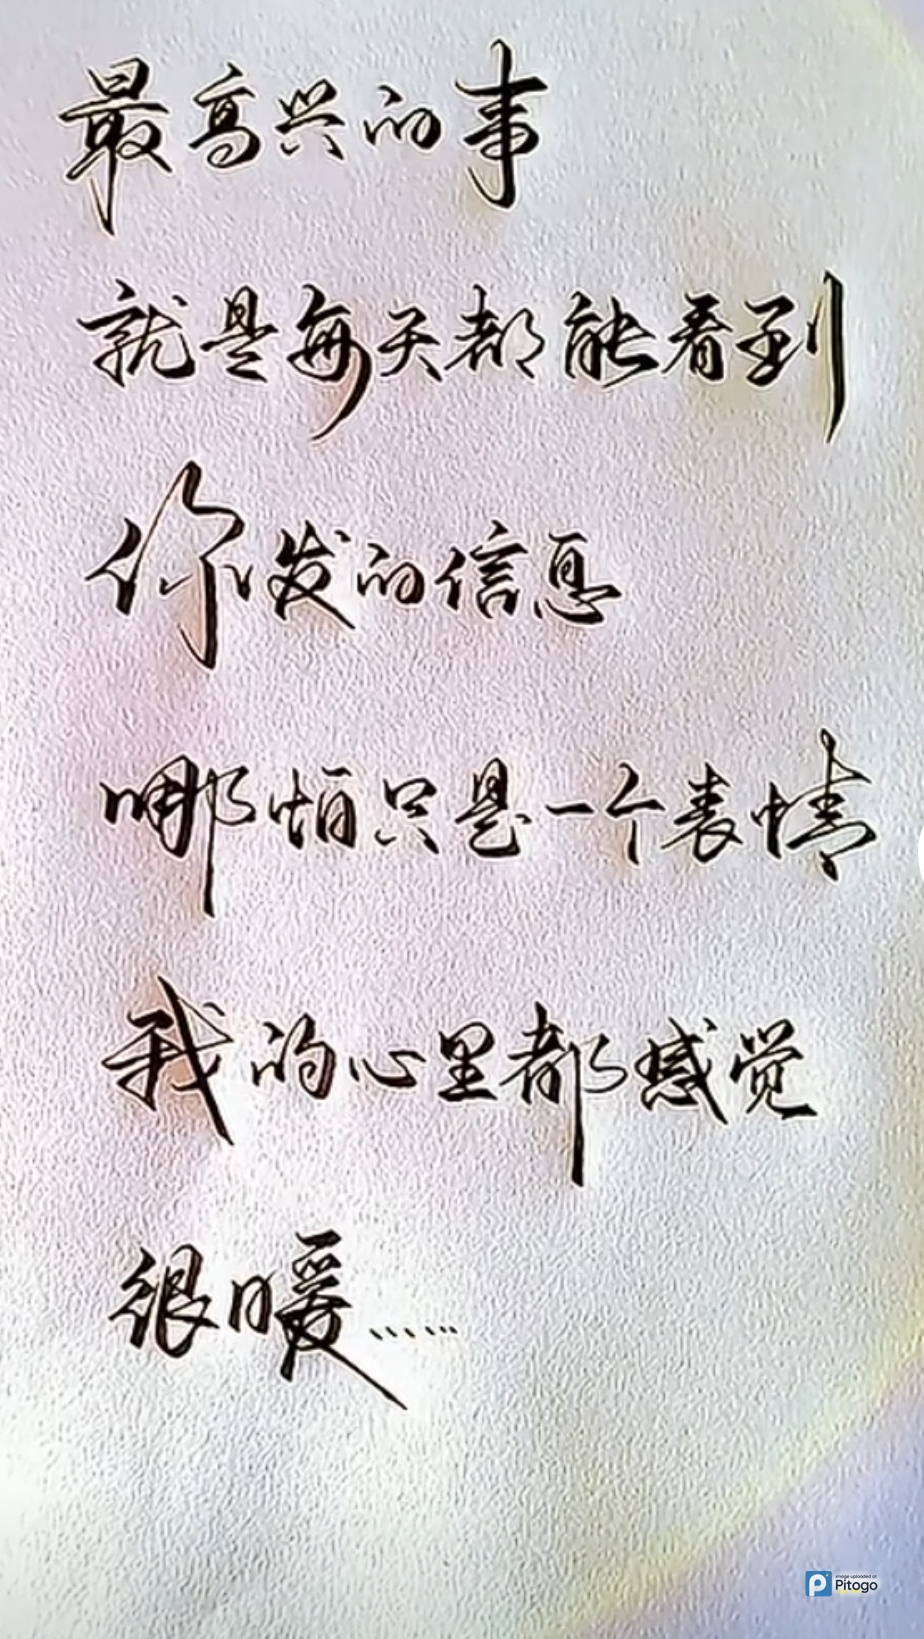 最高兴的事
就是每天都能看到
你发的信息
哪怕只是一个表情
我的心里都感觉
很暖……
image uploaded at
Pitogo